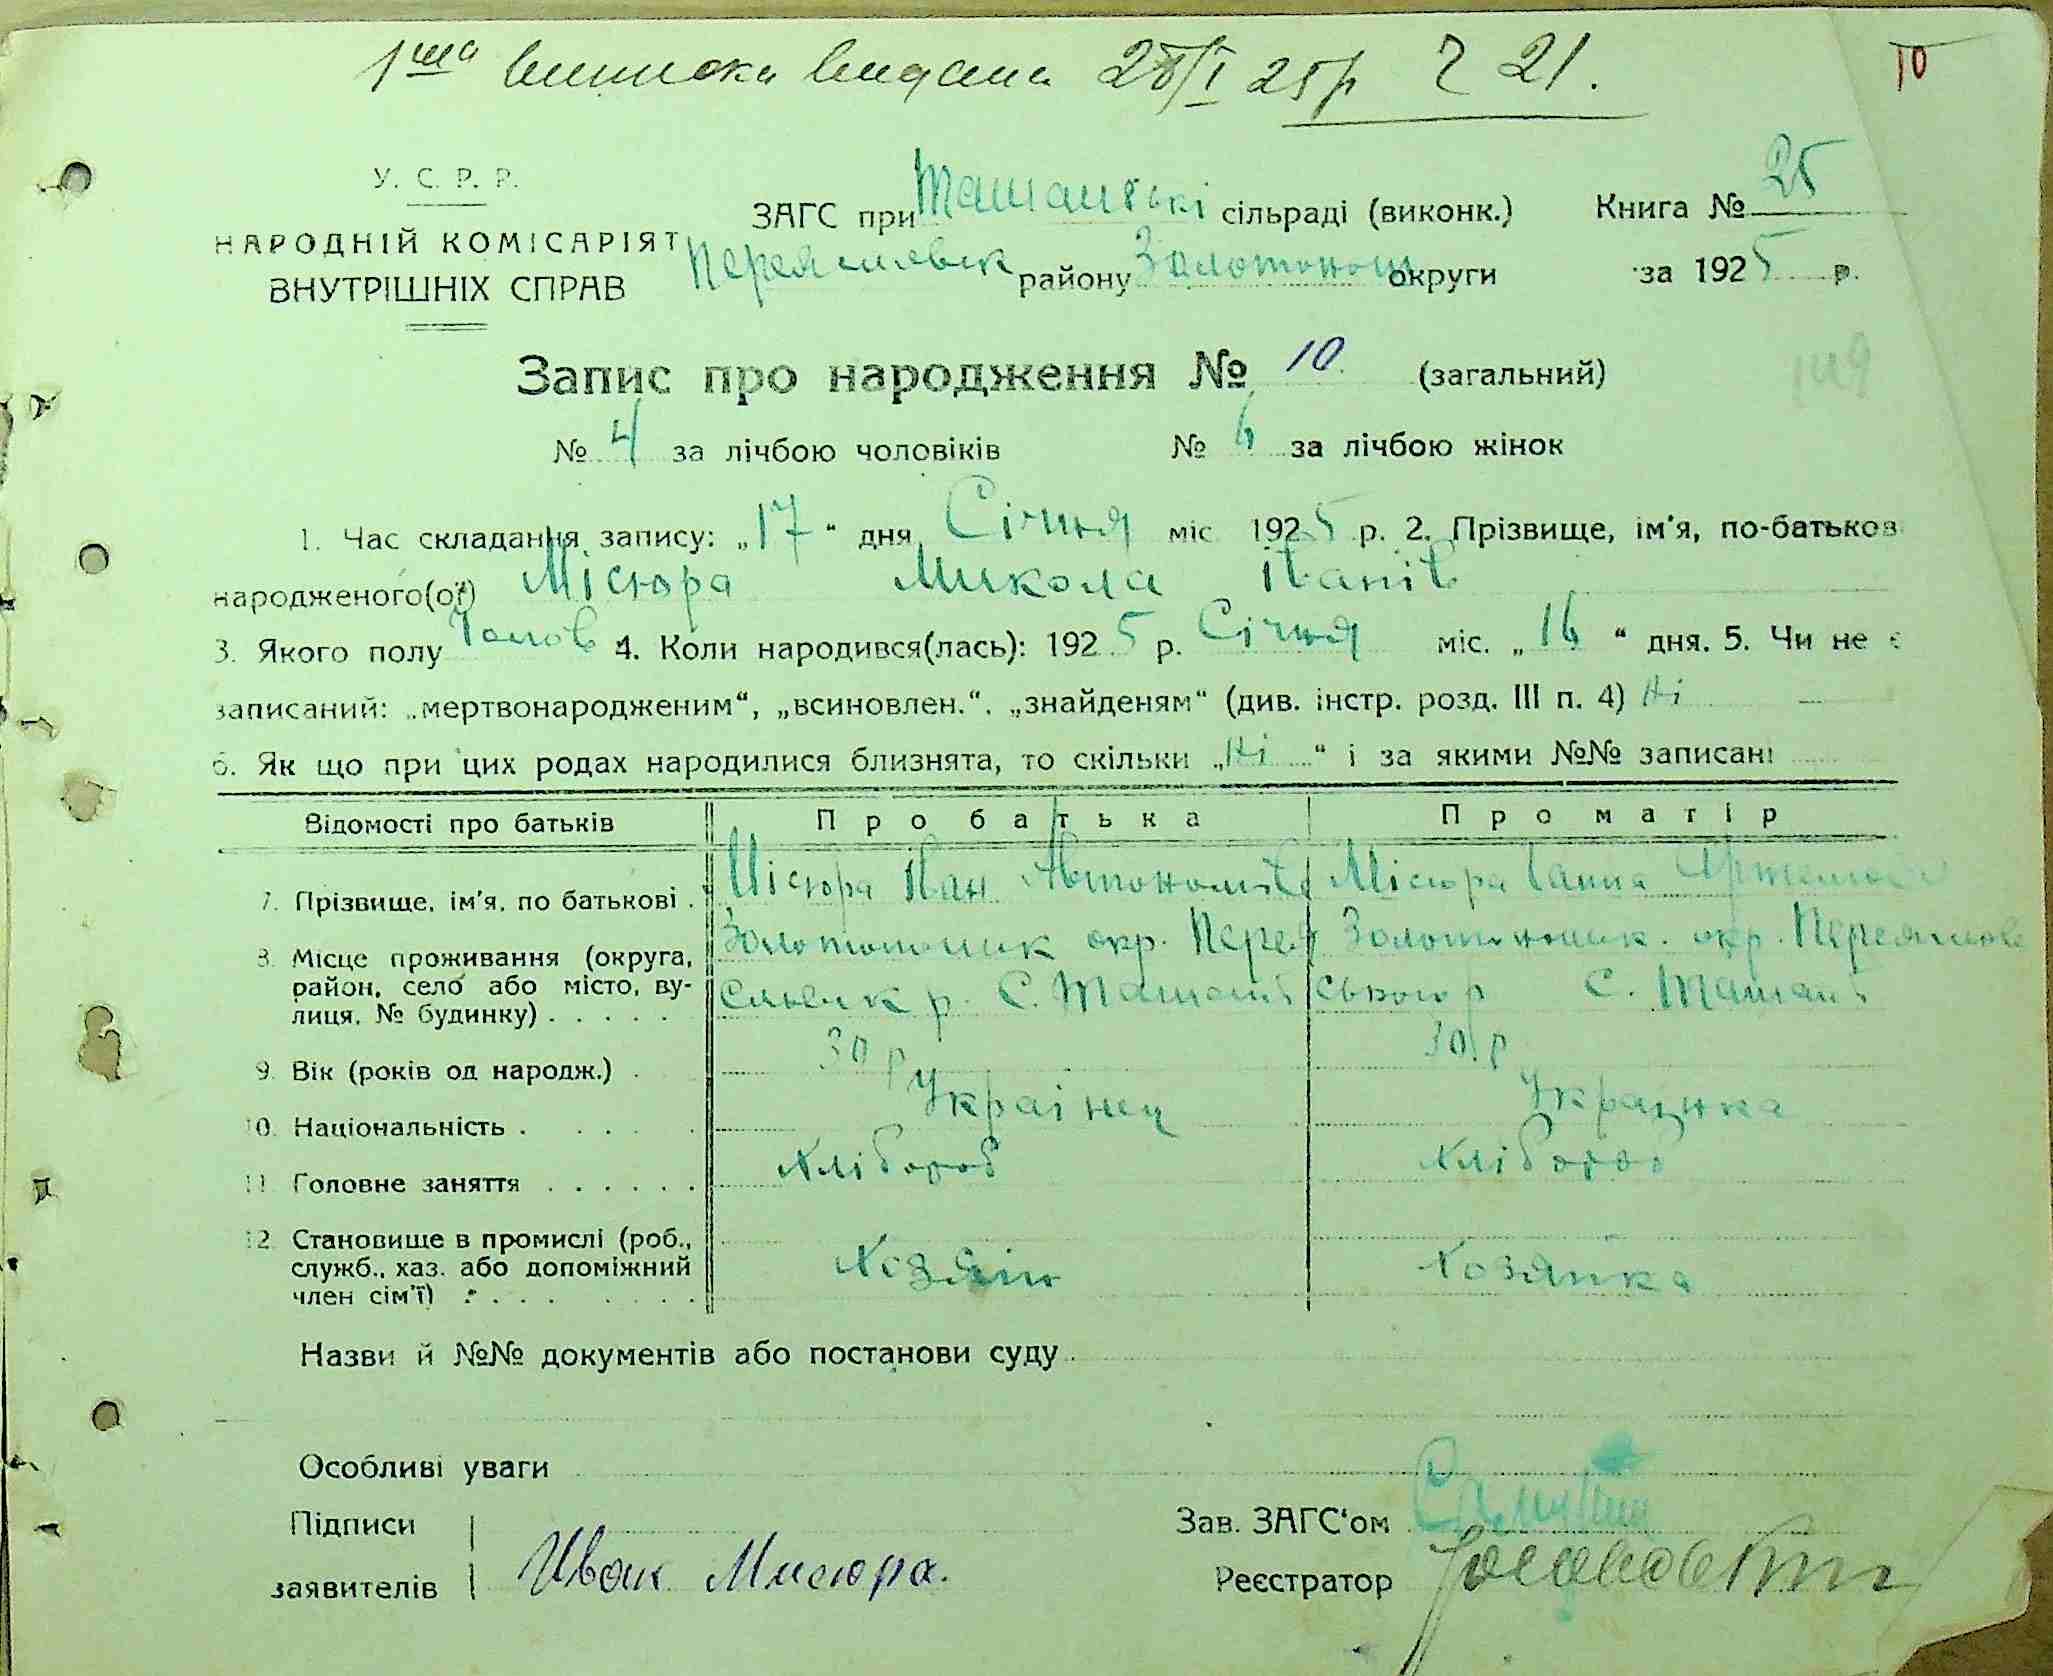 1ша виписка видана 28/I 25р Ч 21.
10
У. С. Р. Р.
НАРОДНІЙ КОМІСАРІЯТ
ВНУТРІШНІХ СПРАВ
ЗАГС при Ташанські сільраді (виконк.) Книга № 25
Переяславск району Золотонош округи за 1925 р.
Запис про народження № 10. (загальний)
149
№ 4 за лічбою чоловіків № 6 за лічбою жінок
1. Час складання запису: „17“ дня Січня міс 1925 р. 2. Прізвище, ім'я, по-батьков
народженого(ої) Місюра Микола Іванів
3. Якого полу Чолов 4. Коли народився(лась): 1925 р. Січня міс. „16“ дня. 5. Чи не є
записаний: „мертвонародженим“, „всиновлен.“. „знайденям“ (див. інстр. розд. III п. 4) Ні
6. Як що при цих родах народилися близнята, то скільки „Ні“ і за якими №№ записані
Відомості про батьків Про батька Про матір
7. Прізвище, ім'я, по батькові . Місюра Іван Автономів Місюра Ганна
8. Місце проживання (округа, Золотоношик окр. Перея Золотоношик. окр. Переяслов
район, село або місто, ву- славск р. С. Ташань ського р С. Ташань
лиця, № будинку) . . . . .
9. Вік (років од народж.) . 30 р 30 р
10. Національність . . . . . Українец Українка
11 Головне заняття . . . . . . Хлібороб Хлібороб
12 Становище в промислі (роб., Хозяін Хозяйка
служб., хаз. або допоміжний
член сім'ї) . . . . . . . .
Назви й №№ документів або постанови суду
Особливі уваги
Підписи Зав. ЗАГС'ом
заявителів Иван Мисюра. Реєстратор